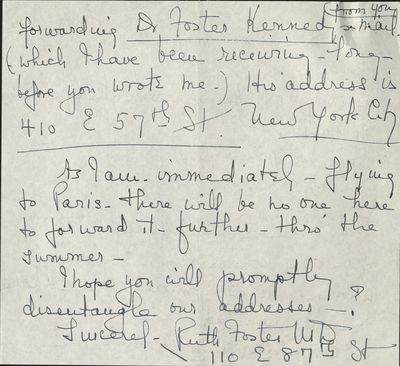 forwarding Dr Foster Kennedy (from you
(which I have been receiving - long -
before you wrote me -) His address is
410 E 57th St. New York City
As I am - immediately - flying
to Paris - there will be no one here
to forward it - further - thro' the
summer -
I hope you will promptly
disentangle our addresses - ?
Sincerely - Ruth Foster MD
110 E 87th St